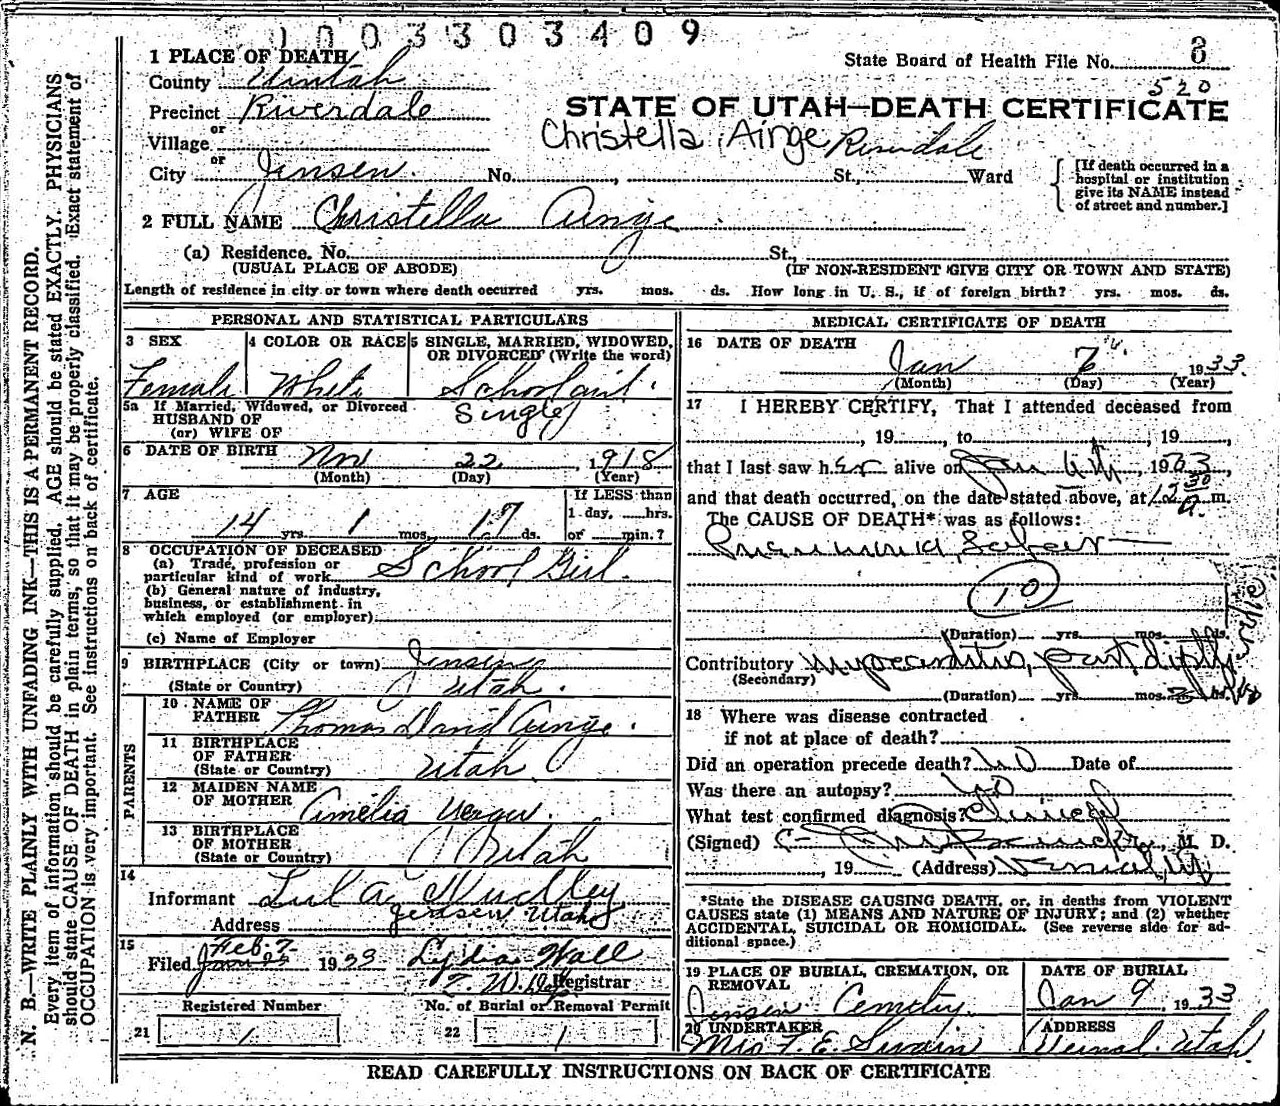 1003303409
1 PLACE OF DEATH
State Board of Health File No. 8
County Uintah
520
Precinct Riverdale
STATE OF UTAH—DEATH CERTIFICATE
or
Village
Christella Ainge Riverdale
or
City Jensen. No. , St., Ward
[If death occurred in a hospital or institution give its NAME instead of street and number.]
2 FULL NAME Christella Ainge
(a) Residence. No. St.,
(USUAL PLACE OF ABODE) (IF NON-RESIDENT GIVE CITY OR TOWN AND STATE)
Length of residence in city or town where death occurred yrs. mos. ds. How long in U. S., if of foreign birth? yrs. mos. ds.
PERSONAL AND STATISTICAL PARTICULARS
3 SEX 4 COLOR OR RACE 5 SINGLE, MARRIED, WIDOWED, OR DIVORCED (Write the word)
Female White
Single
5a If Married, Widowed, or Divorced
HUSBAND OF
(or) WIFE OF
6 DATE OF BIRTH Nov 22, 1918
(Month) (Day) (Year)
7 AGE If LESS than
1 day, hrs.
14 yrs. 1 mos. 17 ds. or min.?
8 OCCUPATION OF DECEASED
(a) Trade, profession or
particular kind of work School Girl.
(b) General nature of industry,
business, or establishment in
which employed (or employer)
(c) Name of Employer
9 BIRTHPLACE (City or town)
(State or Country) Utah.
PARENTS
10 NAME OF
FATHER Thomas David Ainge.
11 BIRTHPLACE
OF FATHER
(State or Country) Utah
12 MAIDEN NAME
OF MOTHER Amelia
13 BIRTHPLACE
OF MOTHER
(State or Country) Utah
14
Informant
Address Jensen Utah
15 Feb. 7
Filed 1933 Lydia Hall
Registrar
Registered Number No. of Burial or Removal Permit
21 1 22 1
MEDICAL CERTIFICATE OF DEATH
16 DATE OF DEATH
Jan 1933
(Month) (Day) (Year)
17 I HEREBY CERTIFY, That I attended deceased from
, 19 , to , 19 ,
that I last saw her alive on Jan 6th, 1933
and that death occurred, on the date stated above, at 12 30 a. m.
The CAUSE OF DEATH* was as follows:
Pneumonia, Lobar
10
(Duration) yrs. mos. ds.
Contributory Myocarditis, post
(Secondary)
(Duration) yrs. mos. ds.
18 Where was disease contracted
if not at place of death?
Did an operation precede death? No Date of
Was there an autopsy? No
What test confirmed diagnosis? Clinical
(Signed) M. D.
, 19 (Address) Vernal, Ut
*State the DISEASE CAUSING DEATH, or, in deaths from VIOLENT
CAUSES state (1) MEANS AND NATURE OF INJURY; and (2) whether
ACCIDENTAL, SUICIDAL OR HOMICIDAL. (See reverse side for ad-
ditional space.)
19 PLACE OF BURIAL, CREMATION, OR
REMOVAL
DATE OF BURIAL
Jensen Cemetery. Jan 9, 1933
20 UNDERTAKER ADDRESS
Mrs F. E. Swain Vernal. Utah.
READ CAREFULLY INSTRUCTIONS ON BACK OF CERTIFICATE
N. B.—WRITE PLAINLY WITH UNFADING INK—THIS IS A PERMANENT RECORD.
Every item of information should be carefully supplied. AGE should be stated EXACTLY. PHYSICIANS
should state CAUSE OF DEATH in plain terms, so that it may be properly classified. Exact statement of
OCCUPATION is very important. See instructions on back of certificate.